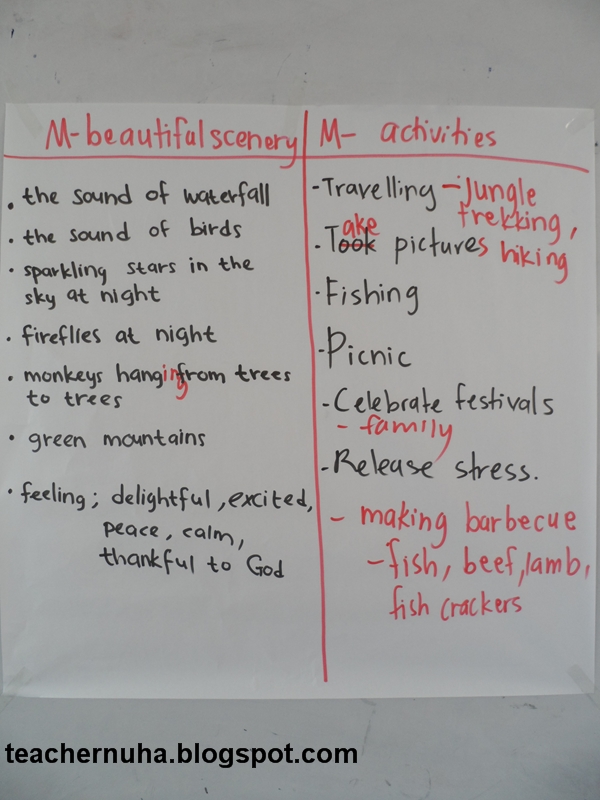 M- beautiful scenery
. the sound of waterfall
. the sound of birds
. sparkling stars in the
sky at night
. fireflies at night
. monkeys hanging from trees
to trees
. green mountains
. feeling; delightful, excited,
peace, calm,
thankful to God
M- activities
- Travelling - jungle
trekking,
ake
- Took pictures hiking
- Fishing
- Picnic
- Celebrate festivals
- family
- Release stress.
- making barbecue
- fish, beef, lamb,
fish crackers
teachernuha.blogspot.com